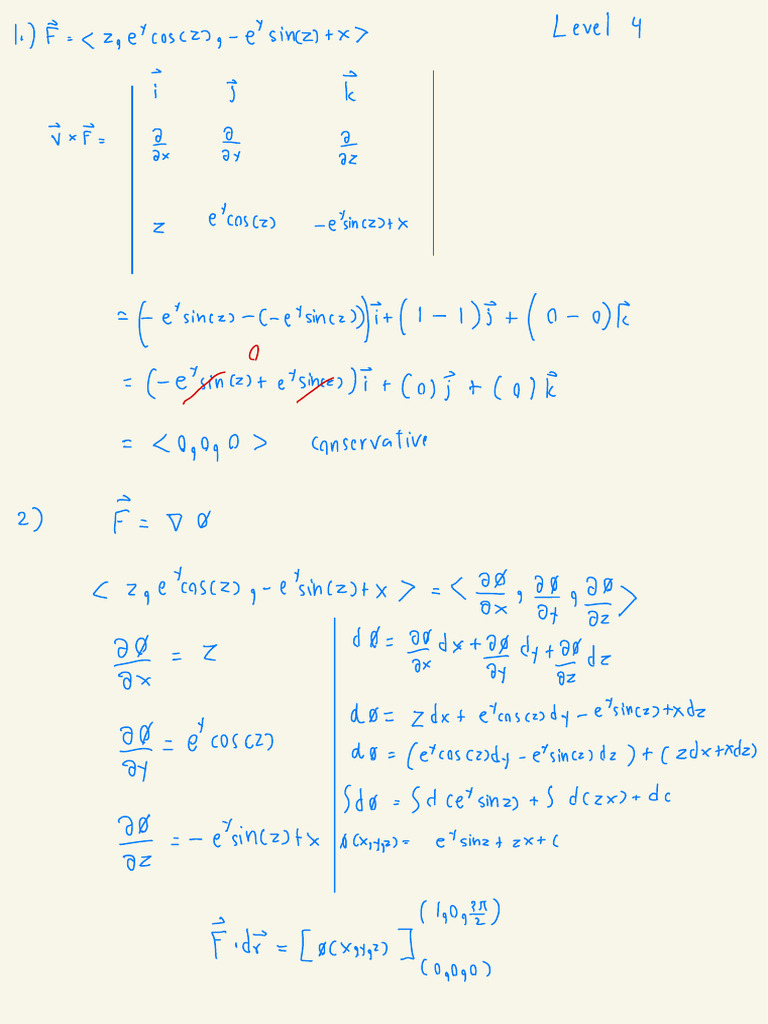 Level 4
1.) F⃗ = < z, e^y cos(z), -e^y sin(z)+x >
i⃗ j⃗ k⃗
∇⃗ × F⃗ = | ∂/∂x ∂/∂y ∂/∂z |
z e^y cos(z) -e^y sin(z)+x
= (-e^y sin(z) - (-e^y sin(z))) i⃗ + (1 - 1) j⃗ + (0 - 0) k⃗
0
= (-e^y sin(z) + e^y sin(z)) i⃗ + (0) j⃗ + (0) k⃗
= <0,0,0> conservative
2) F⃗ = ∇ø
< z, e^y cos(z), -e^y sin(z)+x > = < ∂ø/∂x, ∂ø/∂y, ∂ø/∂z >
∂ø/∂x = z
∂ø/∂y = e^y cos(z)
∂ø/∂z = -e^y sin(z)+x
dø = ∂ø/∂x dx + ∂ø/∂y dy + ∂ø/∂z dz
dø = z dx + e^y cos(z) dy - e^y sin(z)+x dz
dø = (e^y cos(z) dy - e^y sin(z) dz) + (z dx + x dz)
∫dø = ∫d(e^y sin z) + ∫ d(zx) + dc
ø(x,y,z) = e^y sin z + zx + c
F⃗ · dr⃗ = [ø(x,y,z)] (1,0,3π/2) (0,0,0)